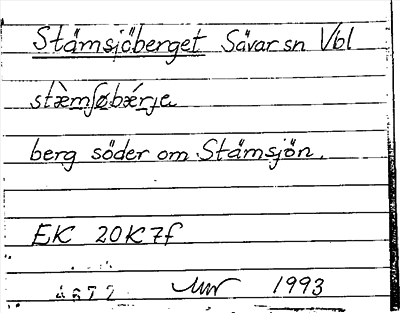 Stämsjöberget Sävar sn Vbl
stæ̀mʃøbǽrje
berg söder om Stämsjön.
EK 20K7f
1993